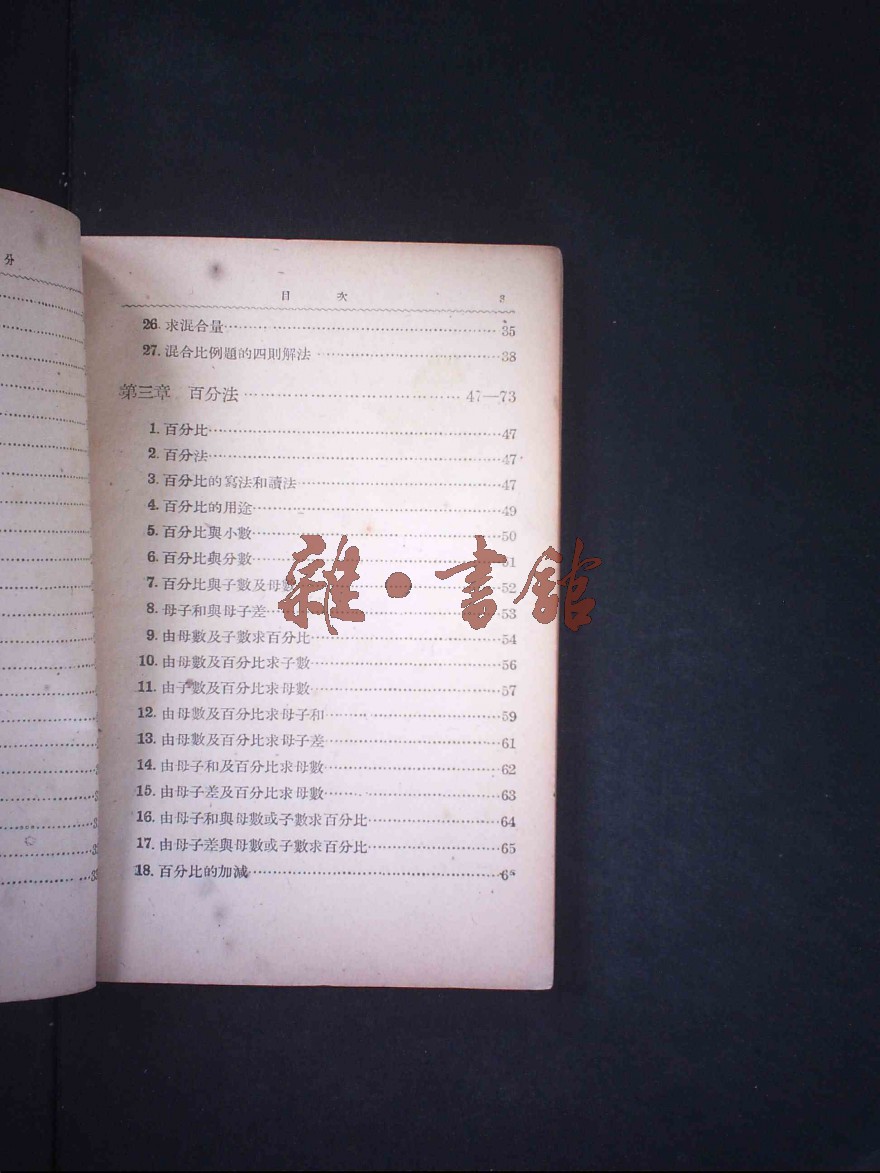 分
目 次 3
26. 求混合量 35
27. 混合比例題的四則解法 38
第三章 百分法 47—73
1. 百分比 47
2. 百分法 47
3. 百分比的寫法和讀法 47
4. 百分比的用途 49
5. 百分比與小數 50
6. 百分比與分數 51
7. 百分比與子數及母數 52
8. 母子和與母子差 53
9. 由母數及子數求百分比 54
10. 由母數及百分比求子數 56
11. 由子數及百分比求母數 57
12. 由母數及百分比求母子和 59
13. 由母數及百分比求母子差 61
14. 由母子和及百分比求母數 62
15. 由母子差及百分比求母數 63
16. 由母子和與母數或子數求百分比 64
17. 由母子差與母數或子數求百分比 65
18. 百分比的加減
雜·書館